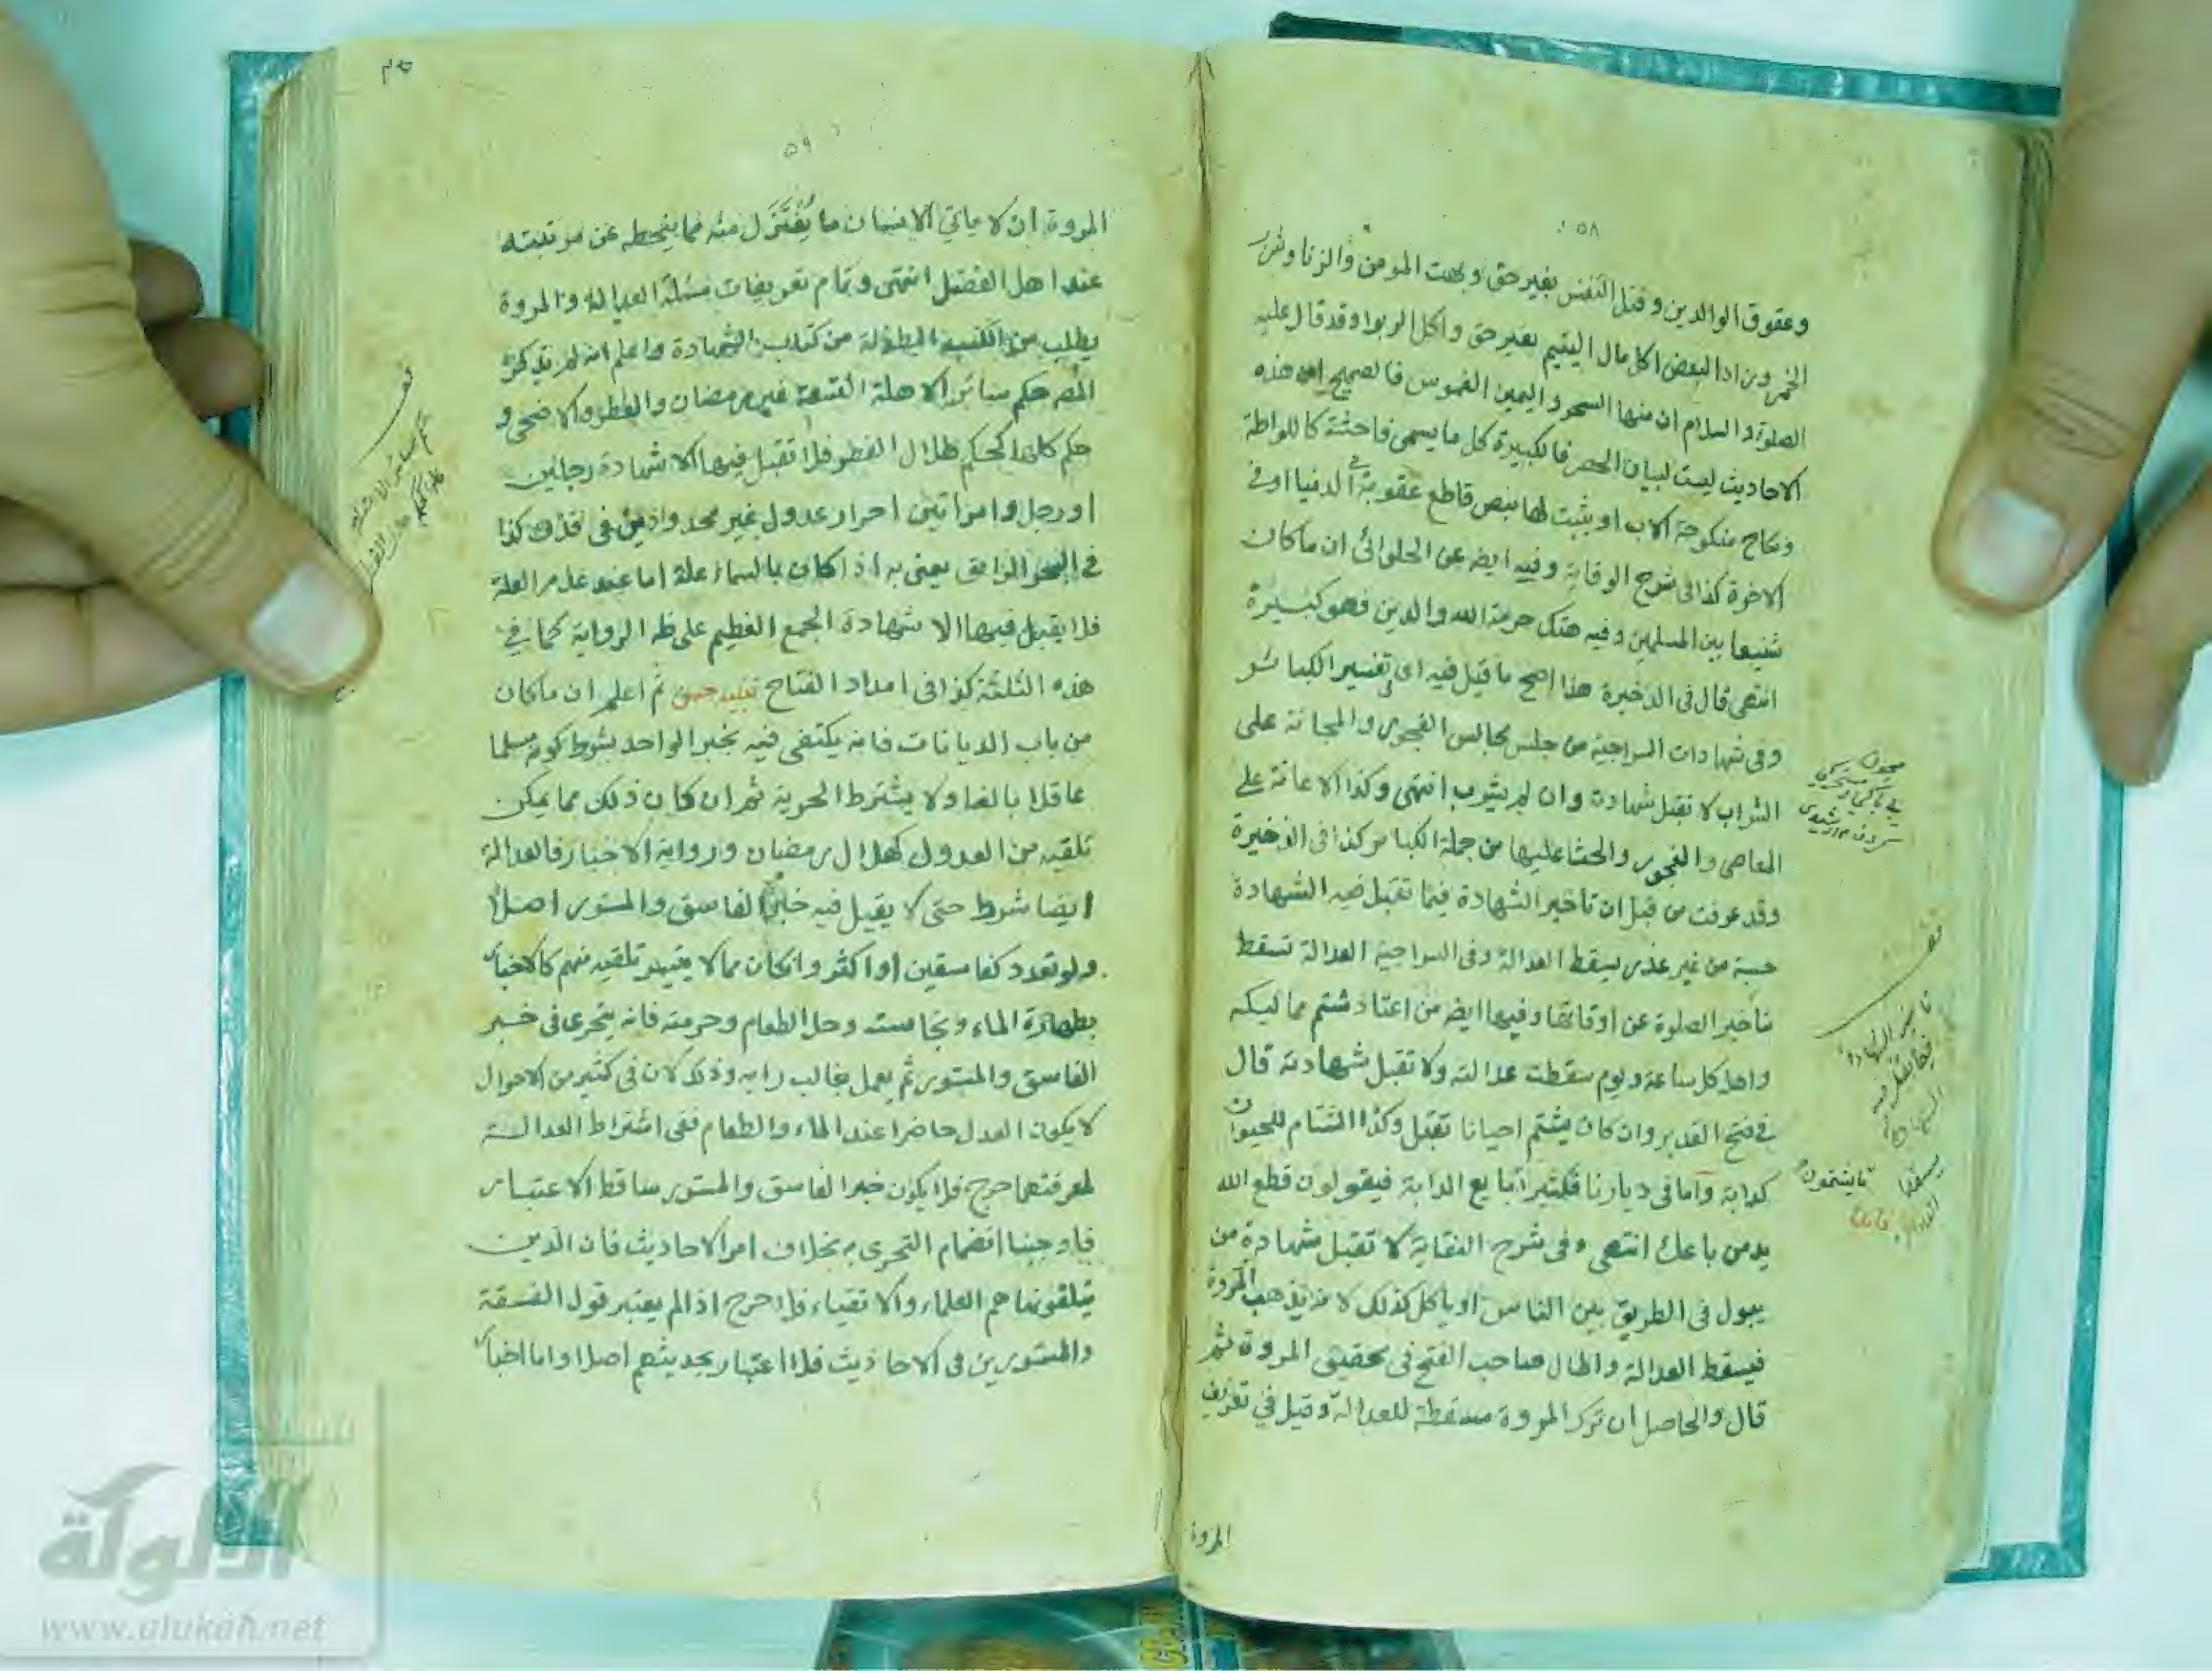 ٥٨
وعقوق الوالدين وقتل النفس بغير حق وبهت المومن والزنا وشرب
الخمر وزاد البعض اكل مال اليتيم بغير حق واكل الربوا وقد قال عليه
الصلوة والسلام ان منها السحر واليمين الغموس فالصحيح ان هذه
الاحاديث ليست لبيان الحصر فالكبيرة كل ما يسمى فاحشة كاللواطة
ونكاح منكوحة الاب او يثبت لها بنص قاطع عقوبة في الدنيا او في
الاخرة كذا في شرح الوقاية وفيه ايضه عن الحلوائي ان ما كان
شنيعا بين المسلمين وفيه هتك حرمة الله والدين فهو كبيرة
انتهى قال في الذخيرة هذا اصح ما قيل فيه اي في تفسير الكبائر
وفي شهادات السراجية من جلس مجالس الفجور والمجانة على
الشراب لا تقبل شهادته وان لم يشرب انتهى وكذا الاعانة على
المعاصي والفجور والحث عليها من جملة الكبائر كذا في الذخيرة
وقد عرفت من قبل ان تأخير الشهادة فيما تقبل فيه الشهادة
حسبة من غير عذر يسقط العدالة وفي السراجية العدالة تسقط
بتأخير الصلوة عن اوقاتها وفيها ايضه من اعتاد شتم مماليكه
واهله كل ساعة ويوم سقطت عدالته ولا تقبل شهادته قال
في فتح القدير وان كان يشتم احيانا تقبل وكذا الشتام للحيوان
كدابة واما في ديارنا فكثيرا بايع الدابة فيقولون قطع الله
يد من باعك انتهى وفي شرح النقاية لا تقبل شهادة من
يبول في الطريق بين الناس او ياكل كذلك لانه يذهب المروة
فيسقط العدالة واطال صاحب الفتح في تحقيق المروة ثم
قال والحاصل ان ترك المروة مسقطة للعدالة وقيل في تعريف
المروة
تأخير الشهادة
فيما تقبل فيه
الشهادة
يسقط
العدالة
يشتمون
٥٩
المروة ان لا ياتي الانسان ما يعتزل منه مما ينحطه عن مرتبته
عند اهل الفضل انتهى وتمام تعريفات مسئلة العدالة والمروة
يطلب من الكتب المطولة من كتاب الشهادة واعلم انه لم يذكر
المصه حكم سائر الاهلة التسعة غير رمضان والفطر والاضحى و
حكم كلها كحكم هلال الفطر فلا تقبل فيها الا شهادة رجلين
او رجل وامراتين احرار عدول غير محدودين في قذف كذا
في البحر الرايق يعني به اذا كان بالسماء علة اما عند عدم العلة
فلا يقبل فيها الا شهادة الجمع العظيم على ظه الرواية كما في
هذه الثلثة كذا في امداد الفتاح تنبيه حسن ثم اعلم ان ما كان
من باب الديانات فانه يكتفى فيه بخبر الواحد بشرط كونه مسلما
عاقلا بالغا ولا يشترط الحرية ثم ان كان ذلك مما يمكن
تلقيه من العدول كهلال رمضان ورواية الاخبار فالعدالة
ايضا شرط حتى لا يقبل فيه خبر الفاسق والمستور اصلا
ولو تعدد كفاسقين او اكثر وان كان مما لا يتيسر تلقيه منهم كالاخبار
بطهارة الماء ونجاسته وحل الطعام وحرمته فانه يتحرى في خبر
الفاسق والمستور ثم يعمل بغالب رايه وذلك لان في كثير من الاحوال
لا يكون العدل حاضرا عند الماء والطعام ففي اشتراط العدالة
لمعرفتهما حرج فلا يكون خبر الفاسق والمستور ساقط الاعتبار
فاوجبنا انضمام التحري به بخلاف امر الاحاديث فان الذين
يتلقونها هم العلماء والاتقياء فلا حرج اذا لم يعتبر قول الفسقة
والمستورين في الاحاديث فلا اعتبار بحديثهم اصلا واما اخبار
الألوكة
www.alukah.net